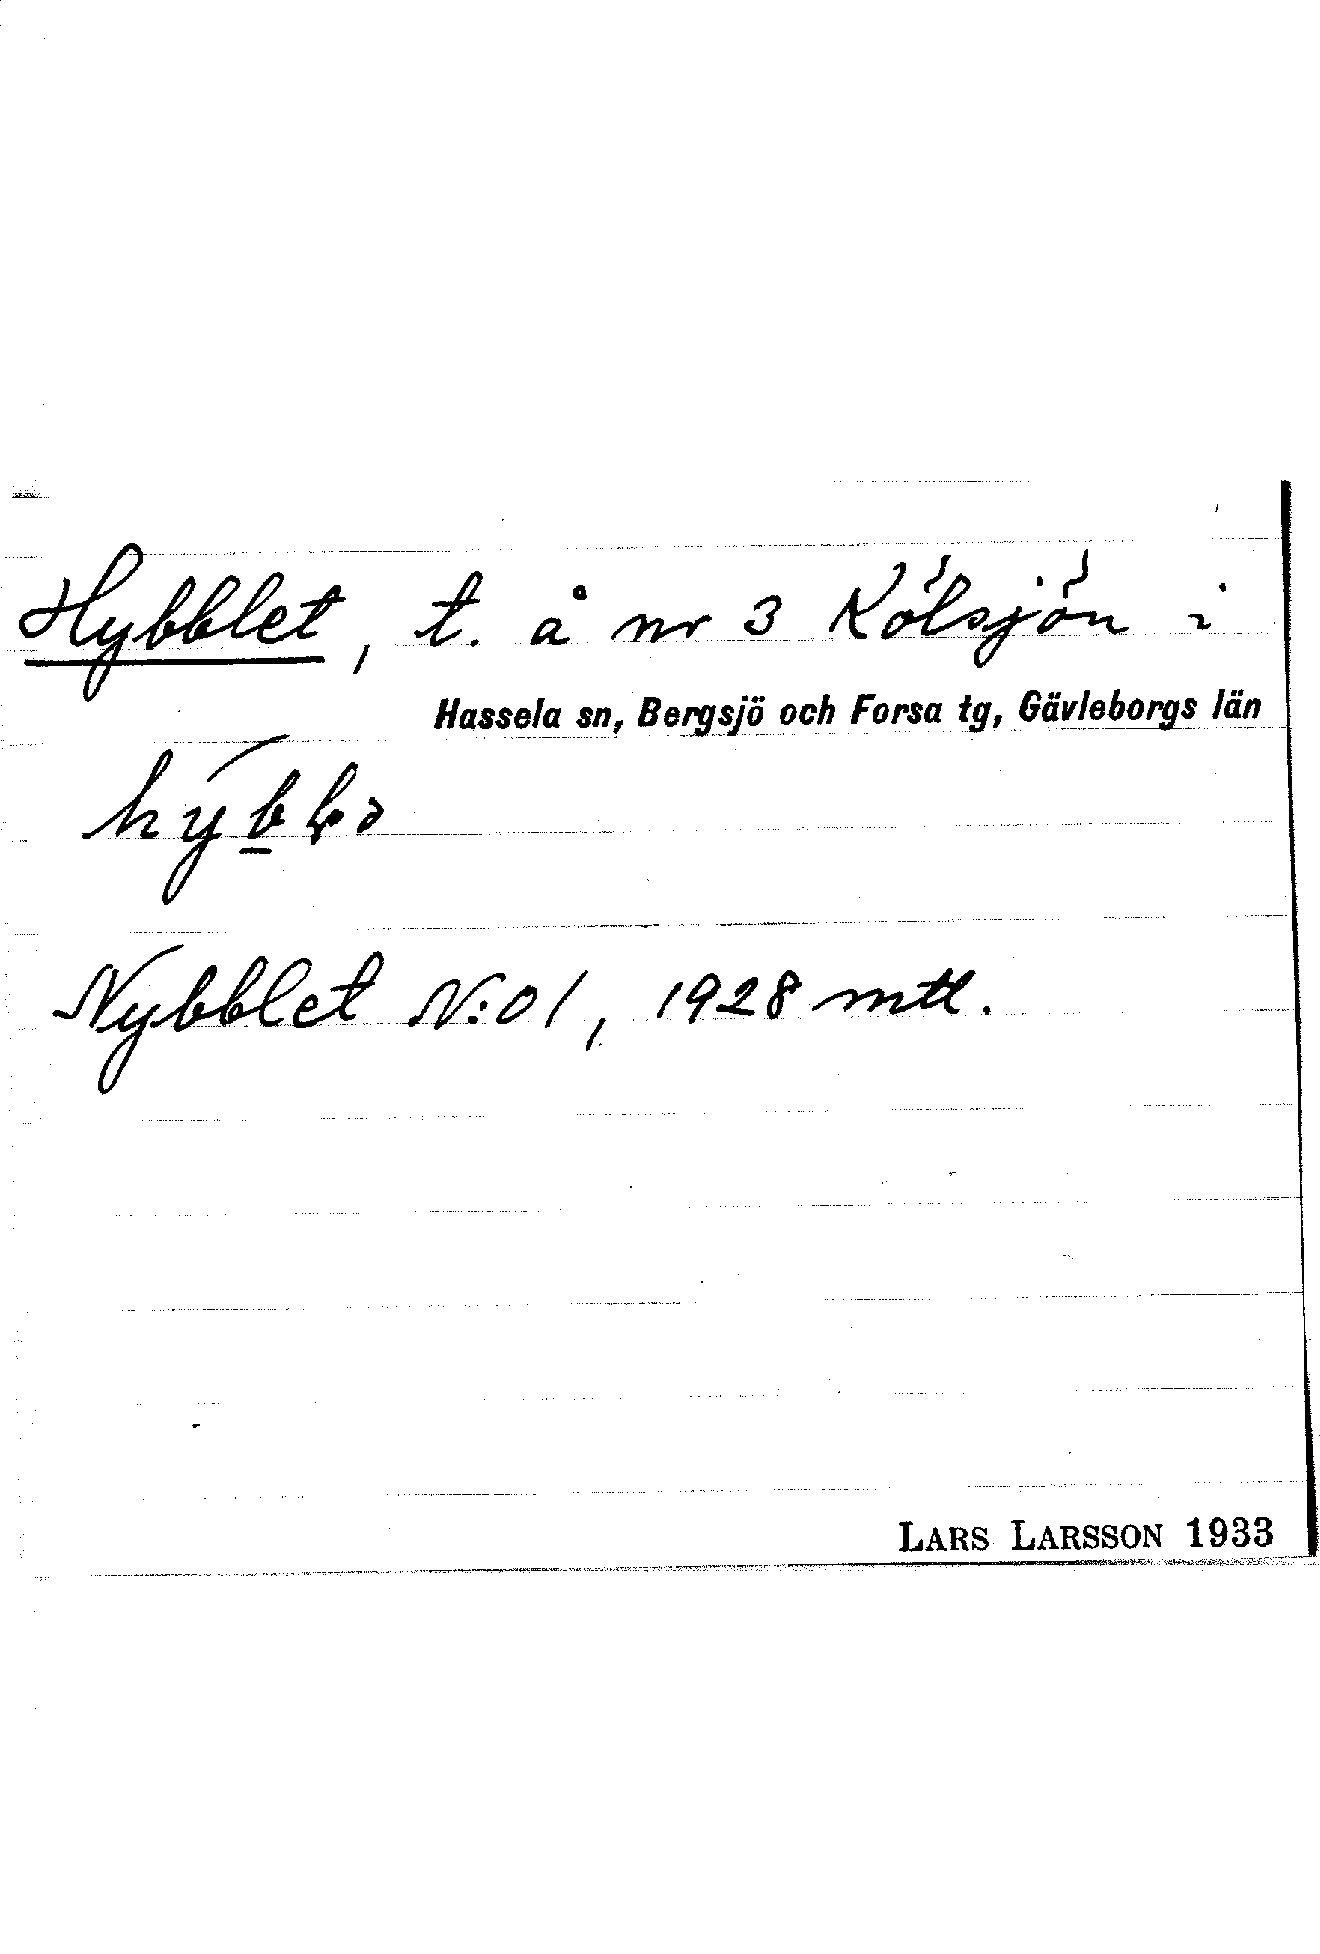 Hybblet, t. å nr 3 Kölsjön i
Hassela sn, Bergsjö och Forsa tg, Gävleborgs län
Nybblet N:o 1, 1928 mtl.
LARS LARSSON 1933